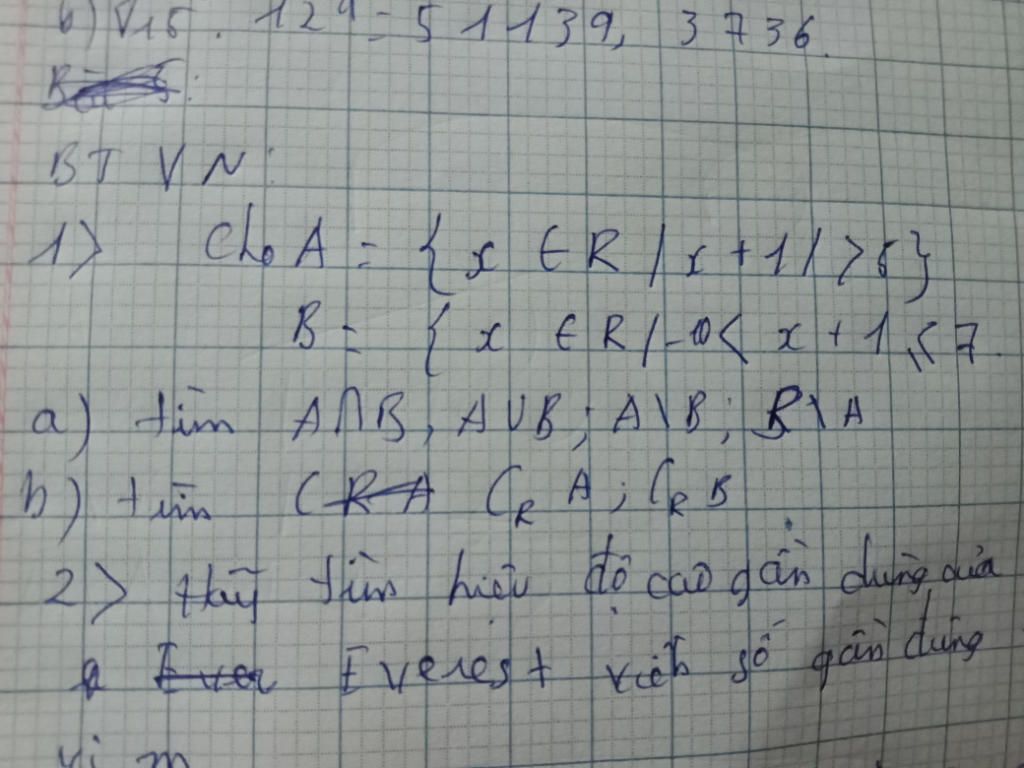 b) √15. 12⁴ = 51139, 3736.
BT VN:
1> Cho A = { x ∈ R / x + 1 / > 5 }
B = { x ∈ R / -10 < x + 1 ≤ 7
a) tìm A∩B, A∪B; A\B; B\A
b) tìm C_R A; C_R B
2> Hãy tìm hiểu độ cao gần đúng của
Everest viết số gần đúng